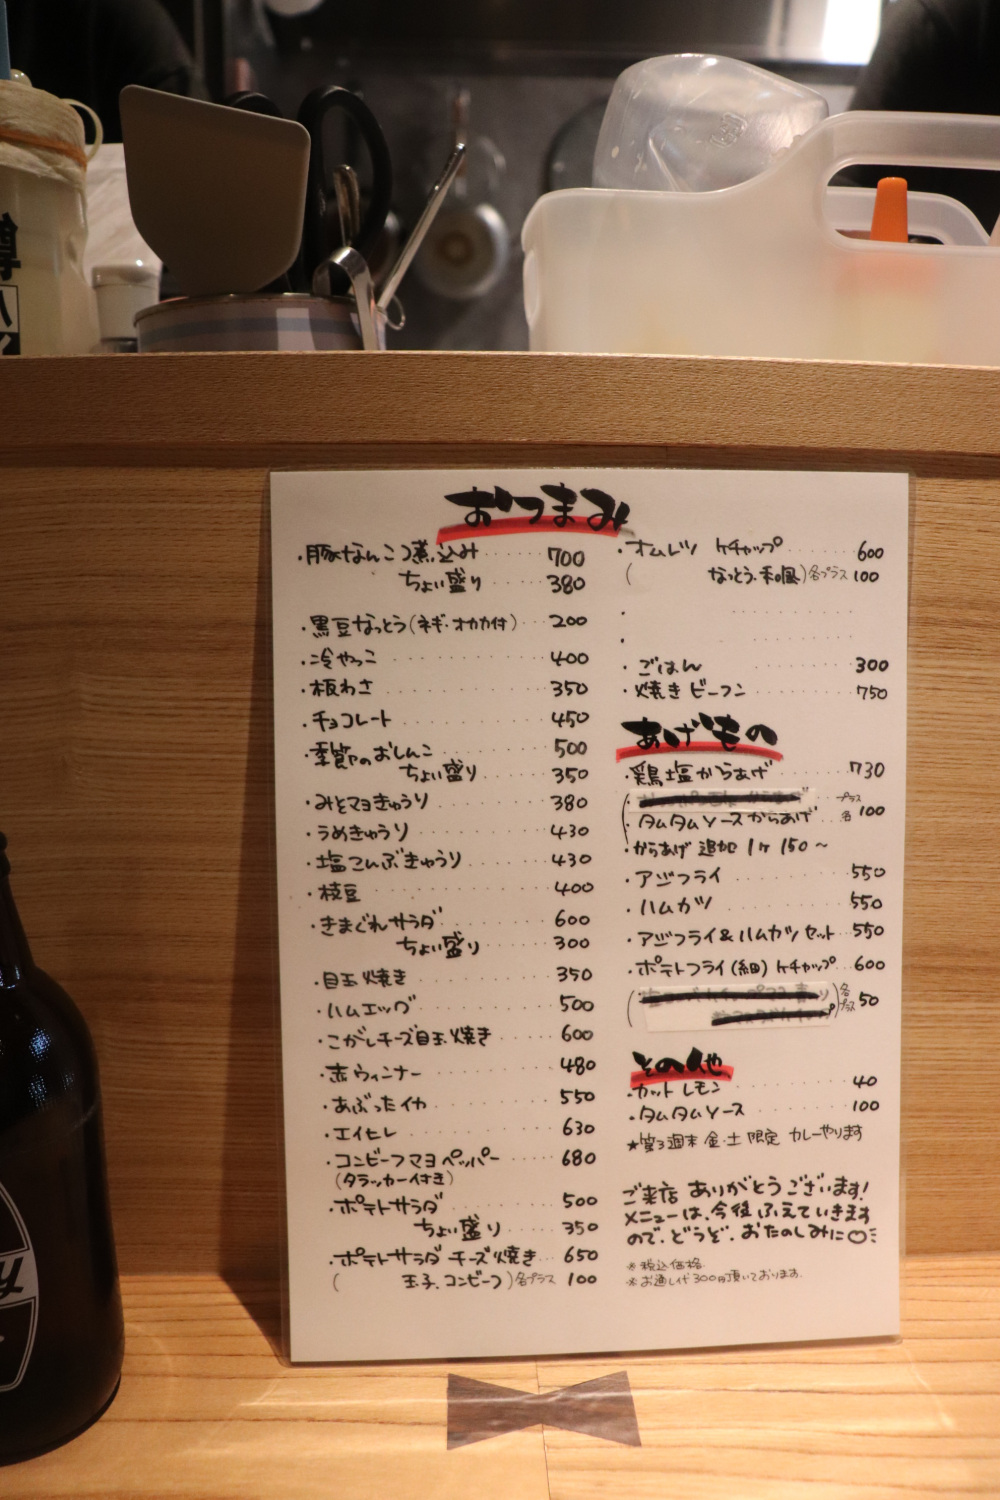 おつまみ
・豚なんこつ煮込み 700
ちょい盛り 380
・黒豆なっとう(ネギ・オカカ付) 200
・冷やっこ 400
・板わさ 350
・チョコレート 450
・季節のおしんこ 500
ちょい盛り 350
・みそマヨきゅうり 380
・うめきゅうり 430
・塩こんぶきゅうり 430
・枝豆 400
・きまぐれサラダ 600
ちょい盛り 300
・目玉焼き 350
・ハムエッグ 500
・こがしチーズ目玉焼き 600
・赤ウィンナー 480
・あぶったイカ 550
・エイヒレ 630
・コンビーフマヨペッパー 680
(クラッカー付き)
・ポテトサラダ 500
ちょい盛り 350
・ポテトサラダチーズ焼き 650
( 玉子、コンビーフ)各プラス 100
・オムレツ ケチャップ 600
( なっとう・和風)各プラス 100
・ごはん 300
・焼きビーフン 750
あげもの
・鶏塩からあげ 730
・タルタルソースからあげ プラス各100
・からあげ追加 1ヶ150〜
・アジフライ 550
・ハムカツ 550
・アジフライ&ハムカツセット 550
・ポテトフライ(細)ケチャップ 600
各プラス 50
その他
・カットレモン 40
・タルタルソース 100
★第3週末 金・土 限定 カレーやります
ご来店 ありがとうございます!
メニューは、今後ふえていきます
ので、どうぞ、おたのしみに
※税込価格
※お通し代300円頂いております。